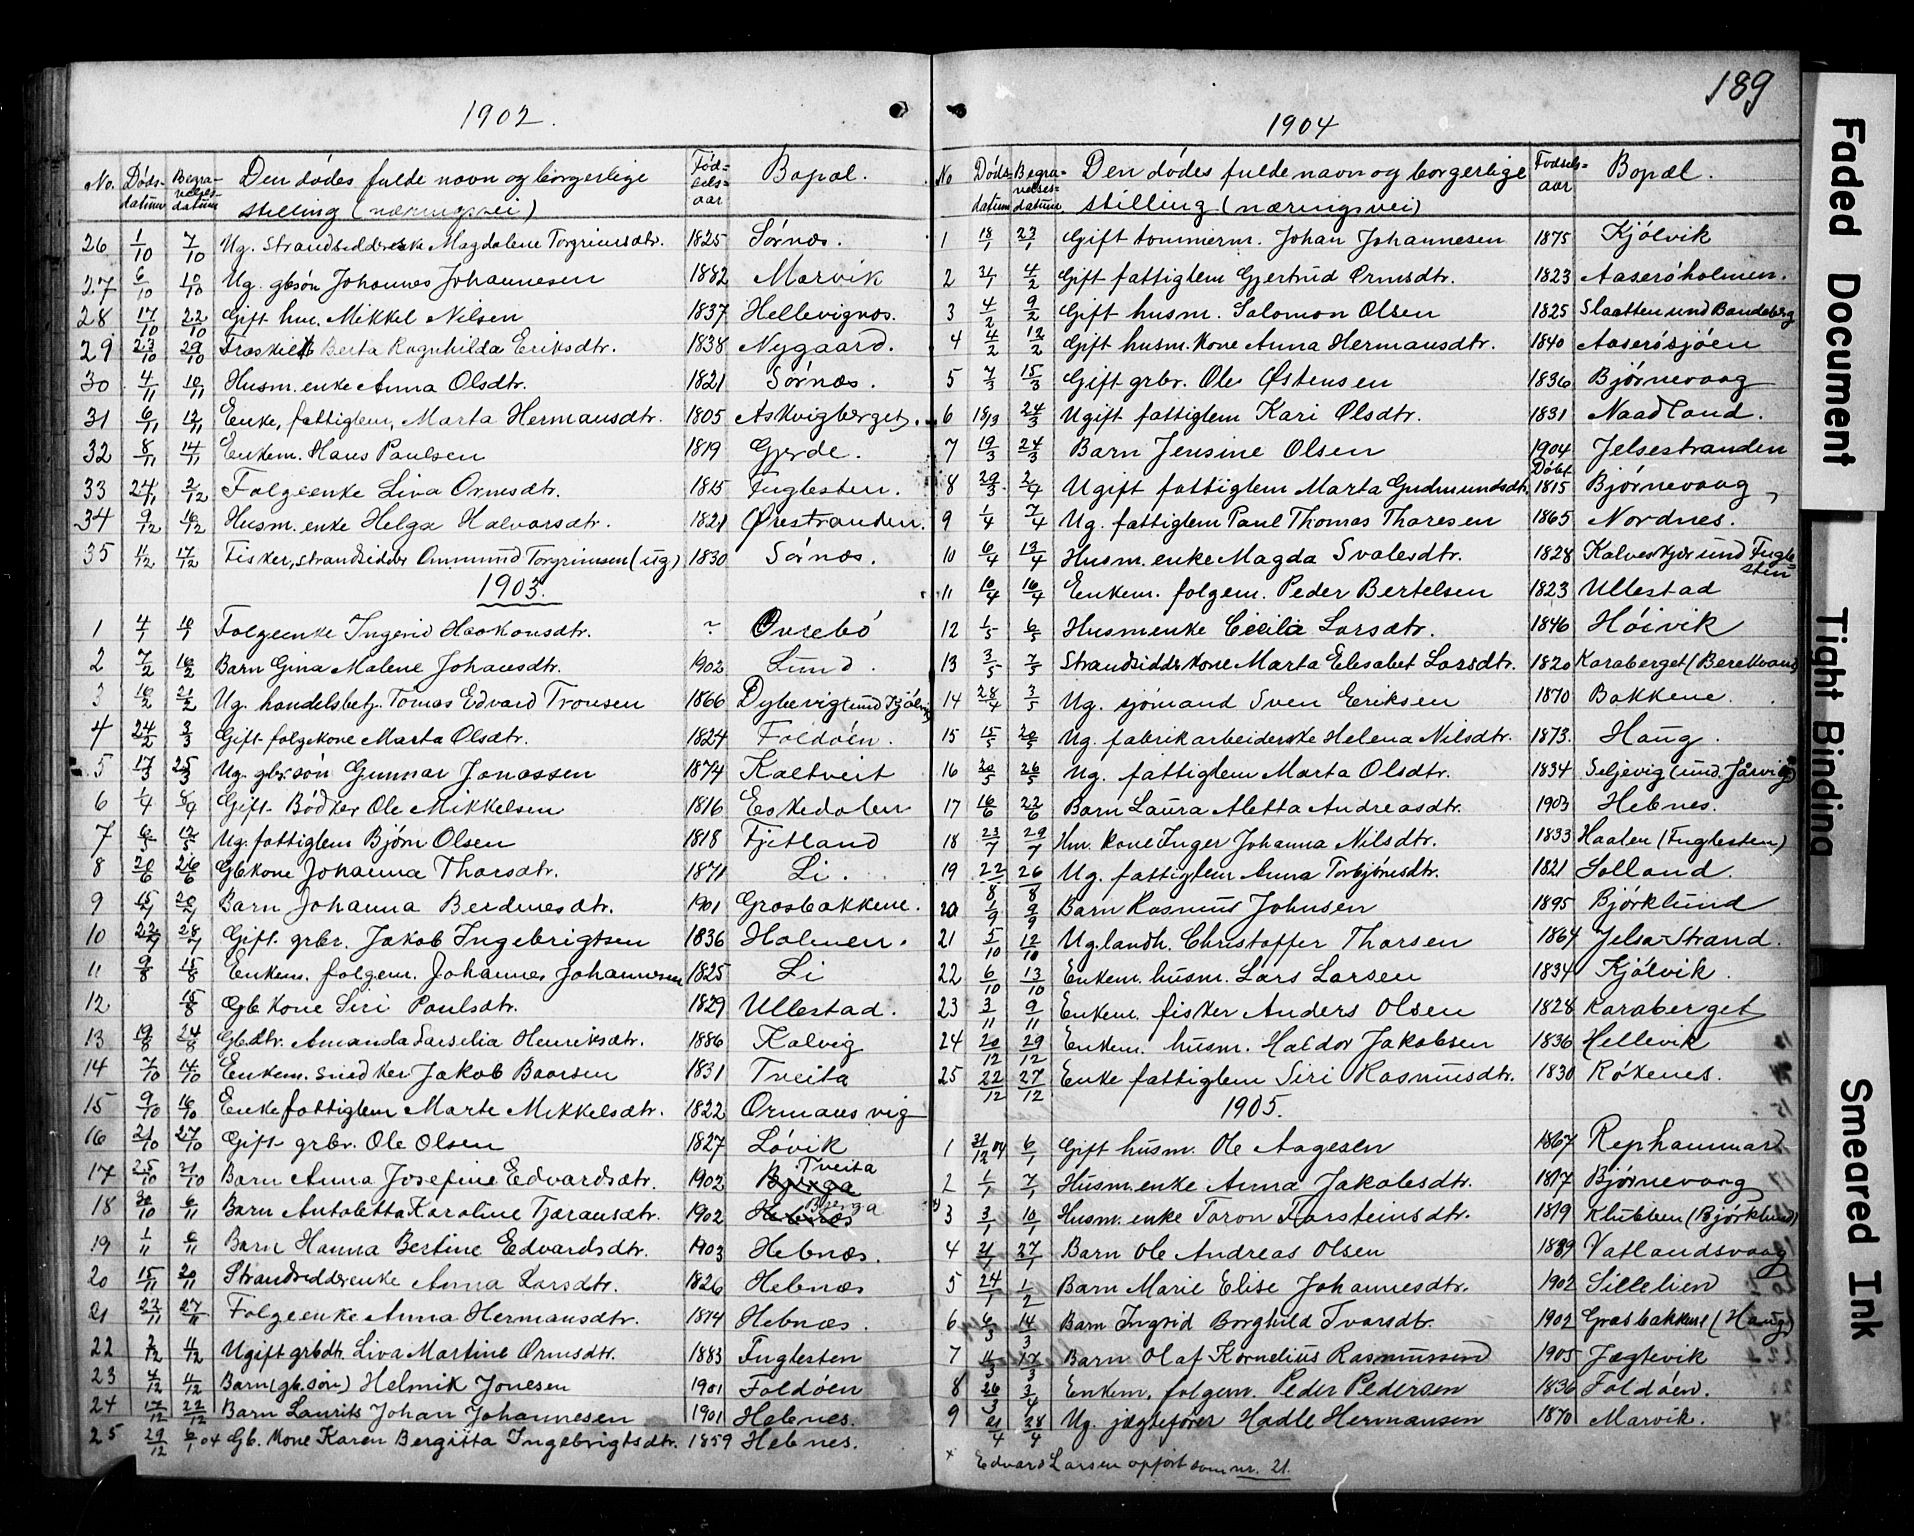 189
1902.
No. Døds-datum Begra-velses-datum Den dødes fulde navn og borgerlige stilling (næringsvei) Fød-sels-aar Bopæl.
26 1/10 7/10 Ug. Strandsidderske Magdalene Torgrimsdtr. 1825 Sørnæs.
27 6/10 10/10 Ug. gbsøn Johannes Johannesen 1882 Marvik
28 17/10 22/10 Gift hm. Mikkel Nilsen 1837 Hellevignæs.
29 23/10 29/10 Fraskilt Berta Ragnhilda Eriksdtr. 1838 Nygaard.
30 4/11 10/11 Husm. enke Anna Olsdtr. 1821 Sørnæs.
31 6/11 12/11 Enke, fattiglem, Marta Hermansdtr. 1805 Askvigberget.
32 8/11 14/11 Enkem. Hans Paulsen 1819 Gjerde.
33 24/11 2/12 Folgeenke Liva Ormsdtr. 1815 Fuglesten.
34 9/12 16/12 Husm. enke Helga Halvorsdtr. 1821 Ørestranden.
35 11/12 17/12 Fisker, strandsidder Ommund Torgrimsen (ug) 1830 Sørnæs.
1903.
1 4/1 10/1 Folgeenke Ingerid Haakonsdtr. ? Ovrebø
2 7/2 16/2 Barn Gina Malene Johansdtr. 1902 Lund.
3 16/2 21/2 Ug. handelsbetj. Tomas Edvard Tronsen 1866 Dybevig und Kjølvig
4 24/2 3/3 Gift folgekone Marta Olsdtr. 1824 Foldøen.
5 17/3 25/3 Ug. gbr.søn Gunnar Jonassen 1874 Kaltveit
6 1/4 8/4 Gift Bødker Ole Mikkelsen 1816 Eskedalen
7 6/5 12/5 Ug. fattiglem Bjørn Olsen 1818 Fjetland
8 20/6 26/6 Gbkone Johanna Thorsdtr. 1871 Li.
9 15/7 20/7 Barn Johanna Berdinesdtr. 1901 Grasbakkene.
10 22/7 28/7 Gift. grbr. Jakob Ingebrigtsen 1836 Holmen.
11 9/8 15/8 Enkem. folgem. Johannes Johannesen 1825 Li
12 15/8 Gb kone Siri Paulsdtr. 1829 Ullestad.
13 19/8 24/8 Gbdtr. Amanda Sarselia Henriksdtr. 1886 Kalvig
14 7/10 14/10 Enkem. snedker Jakob Baarsen 1831 Tveita
15 9/10 16/10 Enke fattiglem Marte Mikkelsdtr. 1822 Ormansvig
16 21/10 27/10 Gift grbr. Ole Olsen 1827 Løvik
17 25/10 31/10 Barn Anna Josefine Edvardsdtr. 1902 Bjerga Tveita
18 30/10 6/11 Barn Antoletta Karoline Tjæransdtr. 1902 Hebnæs Bjerga
19 1/11 6/11 Barn Hanna Bertine Edvardsdtr. 1903 Hebnæs.
20 15/11 20/11 Strandsidderenke Anna Larsdtr. 1826 Hebnæs
21 22/11 27/11 Folgeenke Anna Hermansdtr. 1814 Hebnæs.
22 2/12 11/12 Ugift grbdtr. Liva Martine Ormsdtr. 1883 Fuglesten
23 4/12 11/12 Barn (gb.søn) Helmik Jonesen 1901 Foldøen
24 17/12 22/12 Barn Laurits Johan Johannesen 1901 Hebnes.
25 29/12 6/1 04 Gb. kone Karen Bergitta Ingebrigtsdtr. 1859 Hebnes.
1904
No Døds-datum Begra-velses-datum Den dødes fulde navn og borgerlige stilling (næringsvei) Fødsels-aar Bopæl.
1 18/1 23/1 Gift tømmerm. Johan Johannesen 1875 Kjølvik
2 31/1 4/2 Gift fattiglem Gjertrud Ormsdtr. 1823 Aaserøholmen.
3 4/2 9/2 Gift husm. Salomon Olsen 1825 Slaatten und Bandeberg
4 4/2 12/2 Gift husm. kone Anna Hermansdtr. 1840 Aaserøsjøen
5 7/3 15/3 Gift grbr. Ole Østensen 1836 Bjørnevaag
6 18/3 24/3 Ugift fattiglem Kari Olsdtr. 1831 Naadland.
7 19/3 24/3 Barn Jensine Olsen 1904 Jelsestranden
8 29/3 2/4 Ugift fattiglem Marta Gudmundsdtr. Døbt 1815 Bjørnevaag
9 1/4 7/4 Ug. fattiglem Paul Thomas Tharesen 1865 Nordnes.
10 6/4 13/4 Husm. enke Magda Svalesdtr. 1828 Kalveskjær und Fuglesten
11 10/4 16/4 Enkem. folgem. Peder Bertelsen 1823 Ullestad
12 1/5 6/5 Husmenke Cecilia Larsdtr. 1846 Høivik
13 3/5 7/5 Strandsidderkone Marta Elesabet Larsdtr. 1820 Karaberget (Berekvam)
14 28/4 3/5 Ug. sjømand Sven Eriksen 1870 Bakkene.
15 15/5 20/5 Ug. fabrikarbeiderske Helena Nilsdtr. 1873. Haug.
16 20/5 26/5 Ug. fattiglem Marta Olsdtr. 1834 Seljevig (und. Jårvig)
17 16/6 22/6 Barn Laura Aletta Andreasdtr. 1903 Hebnes.
18 23/7 29/7 Hm. kone Inger Johanna Nilsdtr. 1833 Haalen (Fuglesten)
19 22/8 26/8 Ug. fattiglem Anna Torbjørnsdtr. 1821 Solland.
20 1/9 9/9 Barn Rasmus Johnsen 1895 Bjørklund
21 5/10 12/10 Ug. landh. Christoffer Thorsen 1864 Jelsa-Strand.
22 6/10 13/10 Enkem. husm. Lars Larsen 1834 Kjølvik.
23 3/11 9/11 Enkem. fisker Anders Olsen 1828 Karaberget
24 20/12 29/12 Enkem. husm. Haldor Jakobsen 1836 Hellevik
25 22/12 27/12 Enke fattiglem Siri Rasmusdtr. 1830 Røkenes.
1905.
1 31/12 04 6/1 Gift husm. Ole Aagesen 1867 Rephammar
2 1/1 7/1 Husm. enke Anna Jakobsdtr. 1817 Bjørnevaag
3 3/1 10/1 Husm. enke Toron Torsteinsdtr. 1819 Klubben (Bjørklund)
4 21/1 27/1 Barn Ole Andreas Olsen 1889 Vatlandsvaag
5 24/1 1/2 Barn Marie Elise Johannesdtr. 1902 Sillelien
6 6/3 14/3 Barn Ingrid Borghild Ivarsdtr. 1902 Grasbakkene (Haug)
7 11/3 17/3 Barn Olaf Kornelius Rasmussen 1905 Jægtevik
8 26/3 3/4 Enkem. folgem. Peder Pedersen 1836 Foldøen.
9 21/4 28/4 Ug. jægtefører Hadle Hermansen 1870 Marvik.
× Edvard Larsen opført som nr. 21.
Faded Document
Tight Binding
Smeared Ink